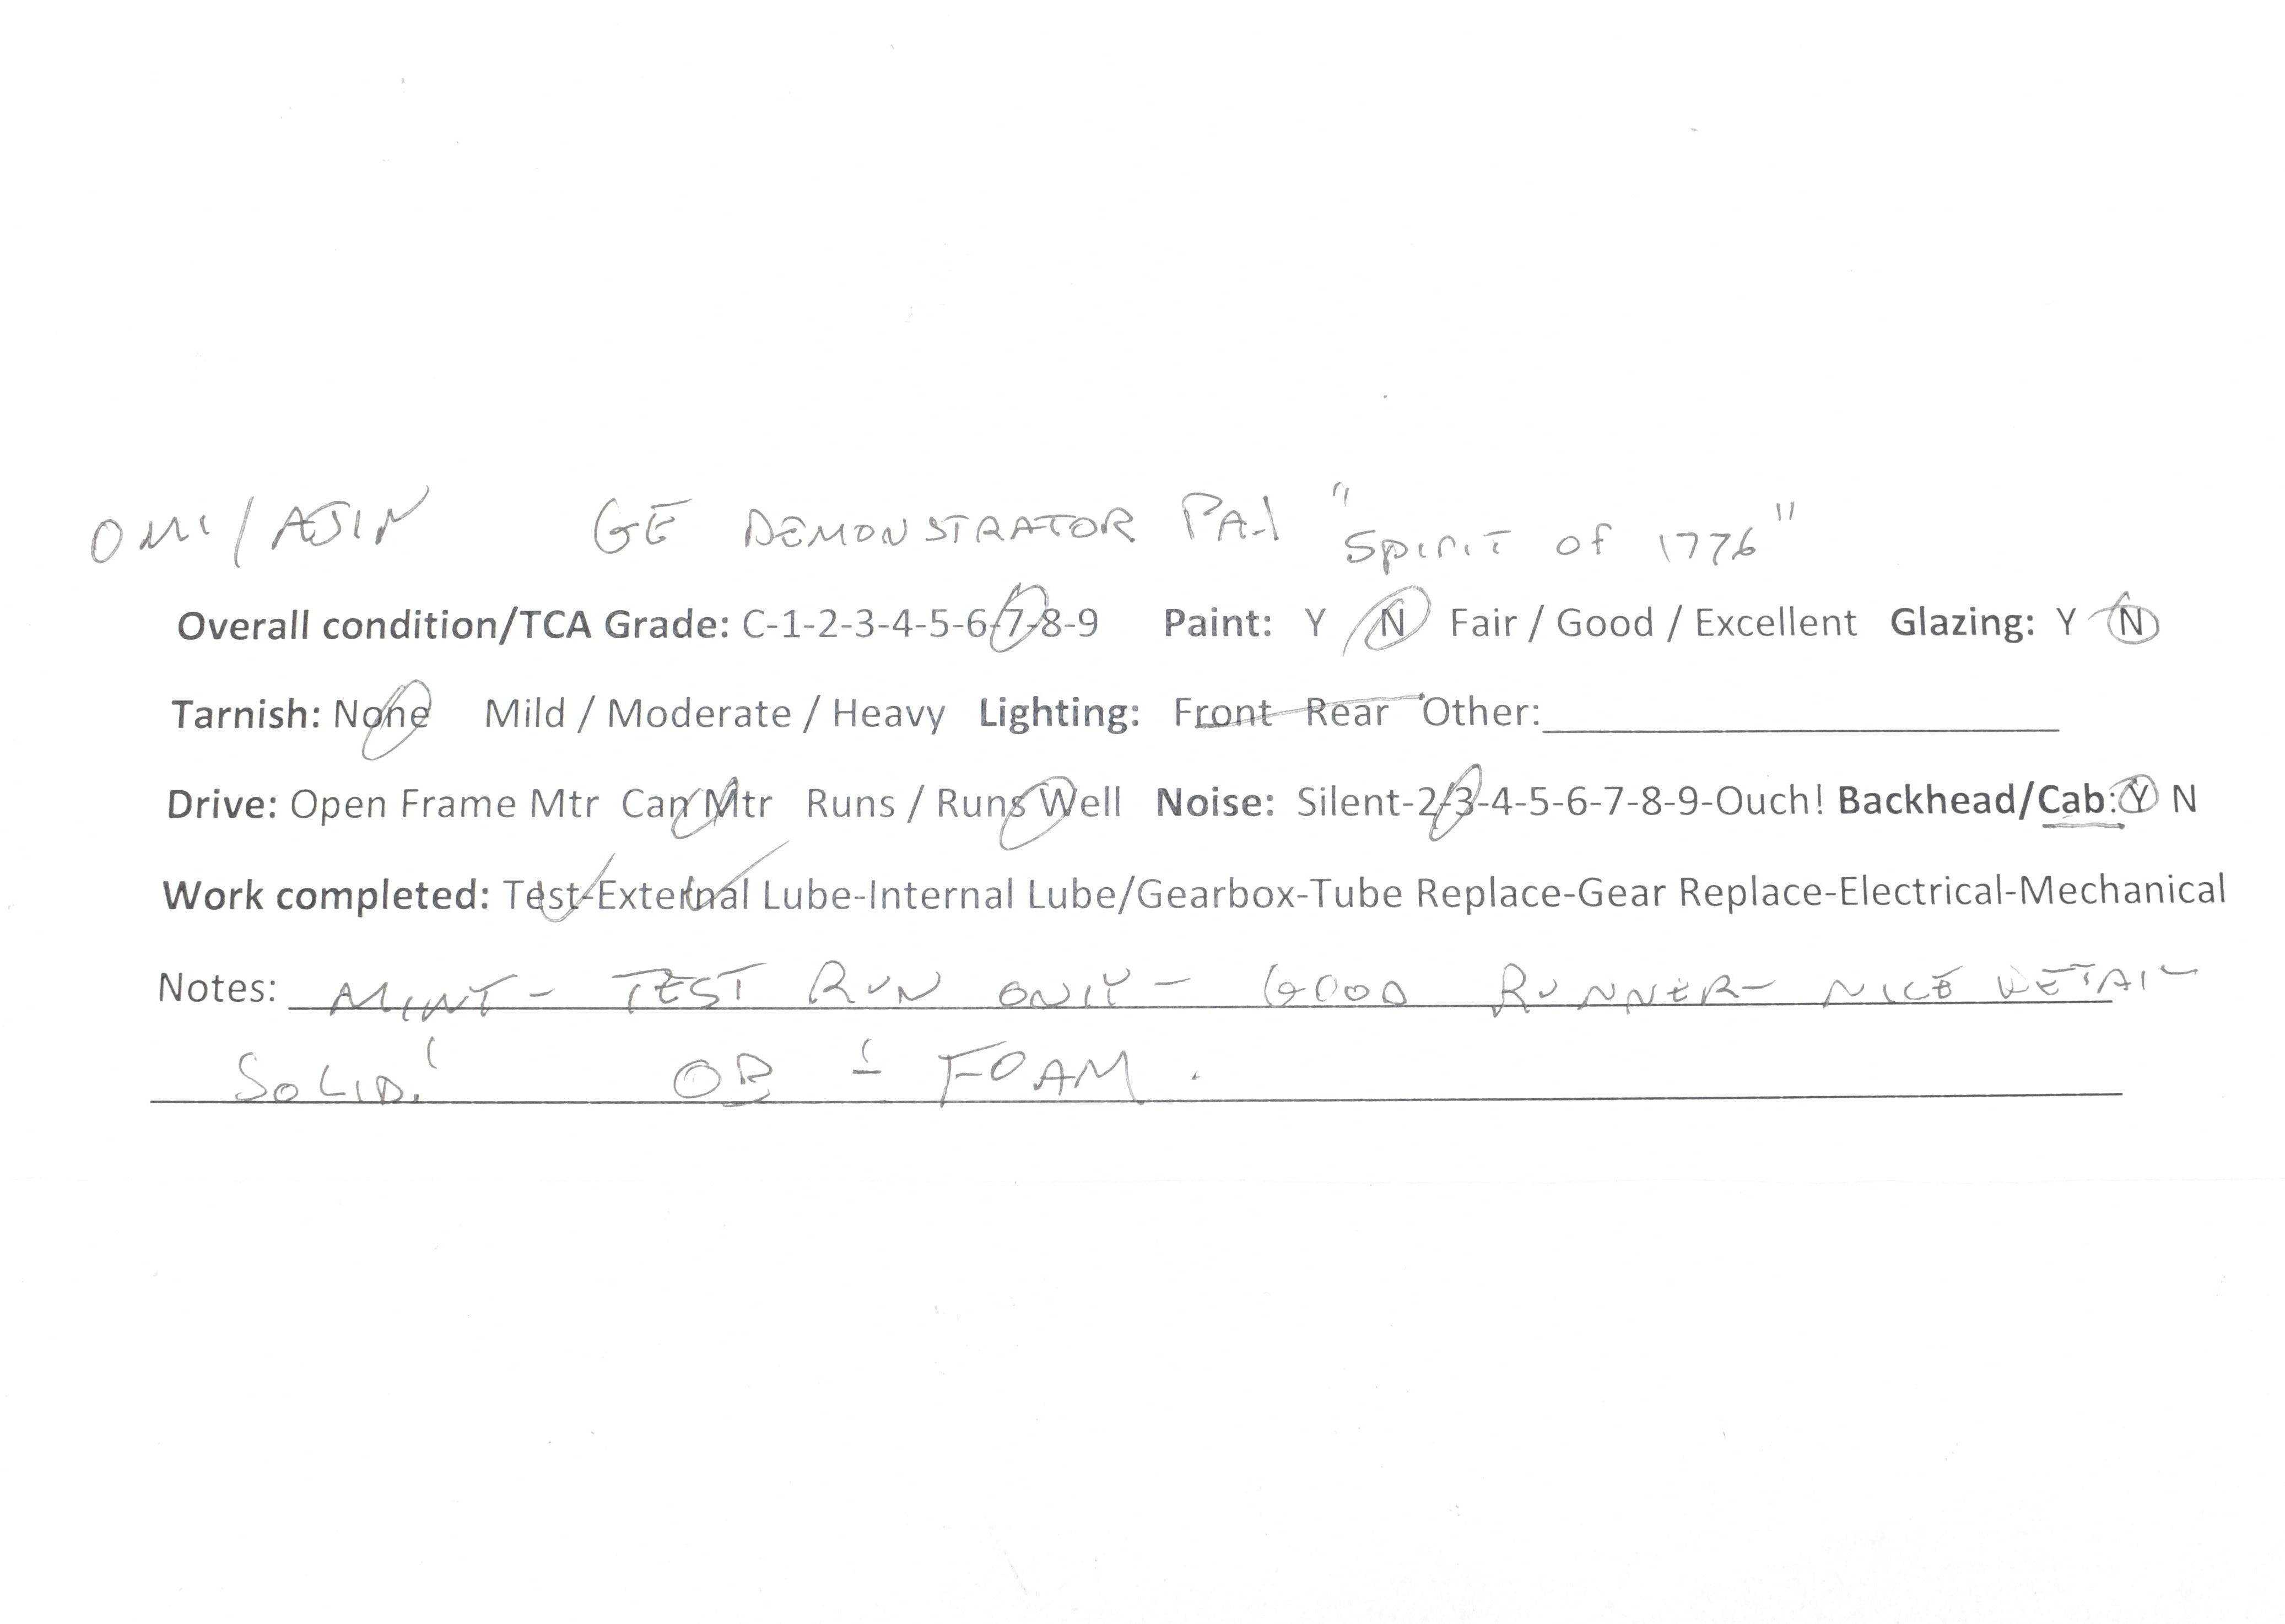 OMI/AJIN GE DEMONSTRATOR PA-1 "Spirit of 1776"
Overall condition/TCA Grade: C-1-2-3-4-5-6-7-8-9 Paint: Y N Fair / Good / Excellent Glazing: Y N
Tarnish: None Mild / Moderate / Heavy Lighting: Front Rear Other:
Drive: Open Frame Mtr Can Mtr Runs / Runs Well Noise: Silent-2-3-4-5-6-7-8-9-Ouch! Backhead/Cab: Y N
Work completed: Test-External Lube-Internal Lube/Gearbox-Tube Replace-Gear Replace-Electrical-Mechanical
Notes: MINT - TEST RUN ONLY - GOOD RUNNER - NICE DETAIL
SOLID! OB FOAM.